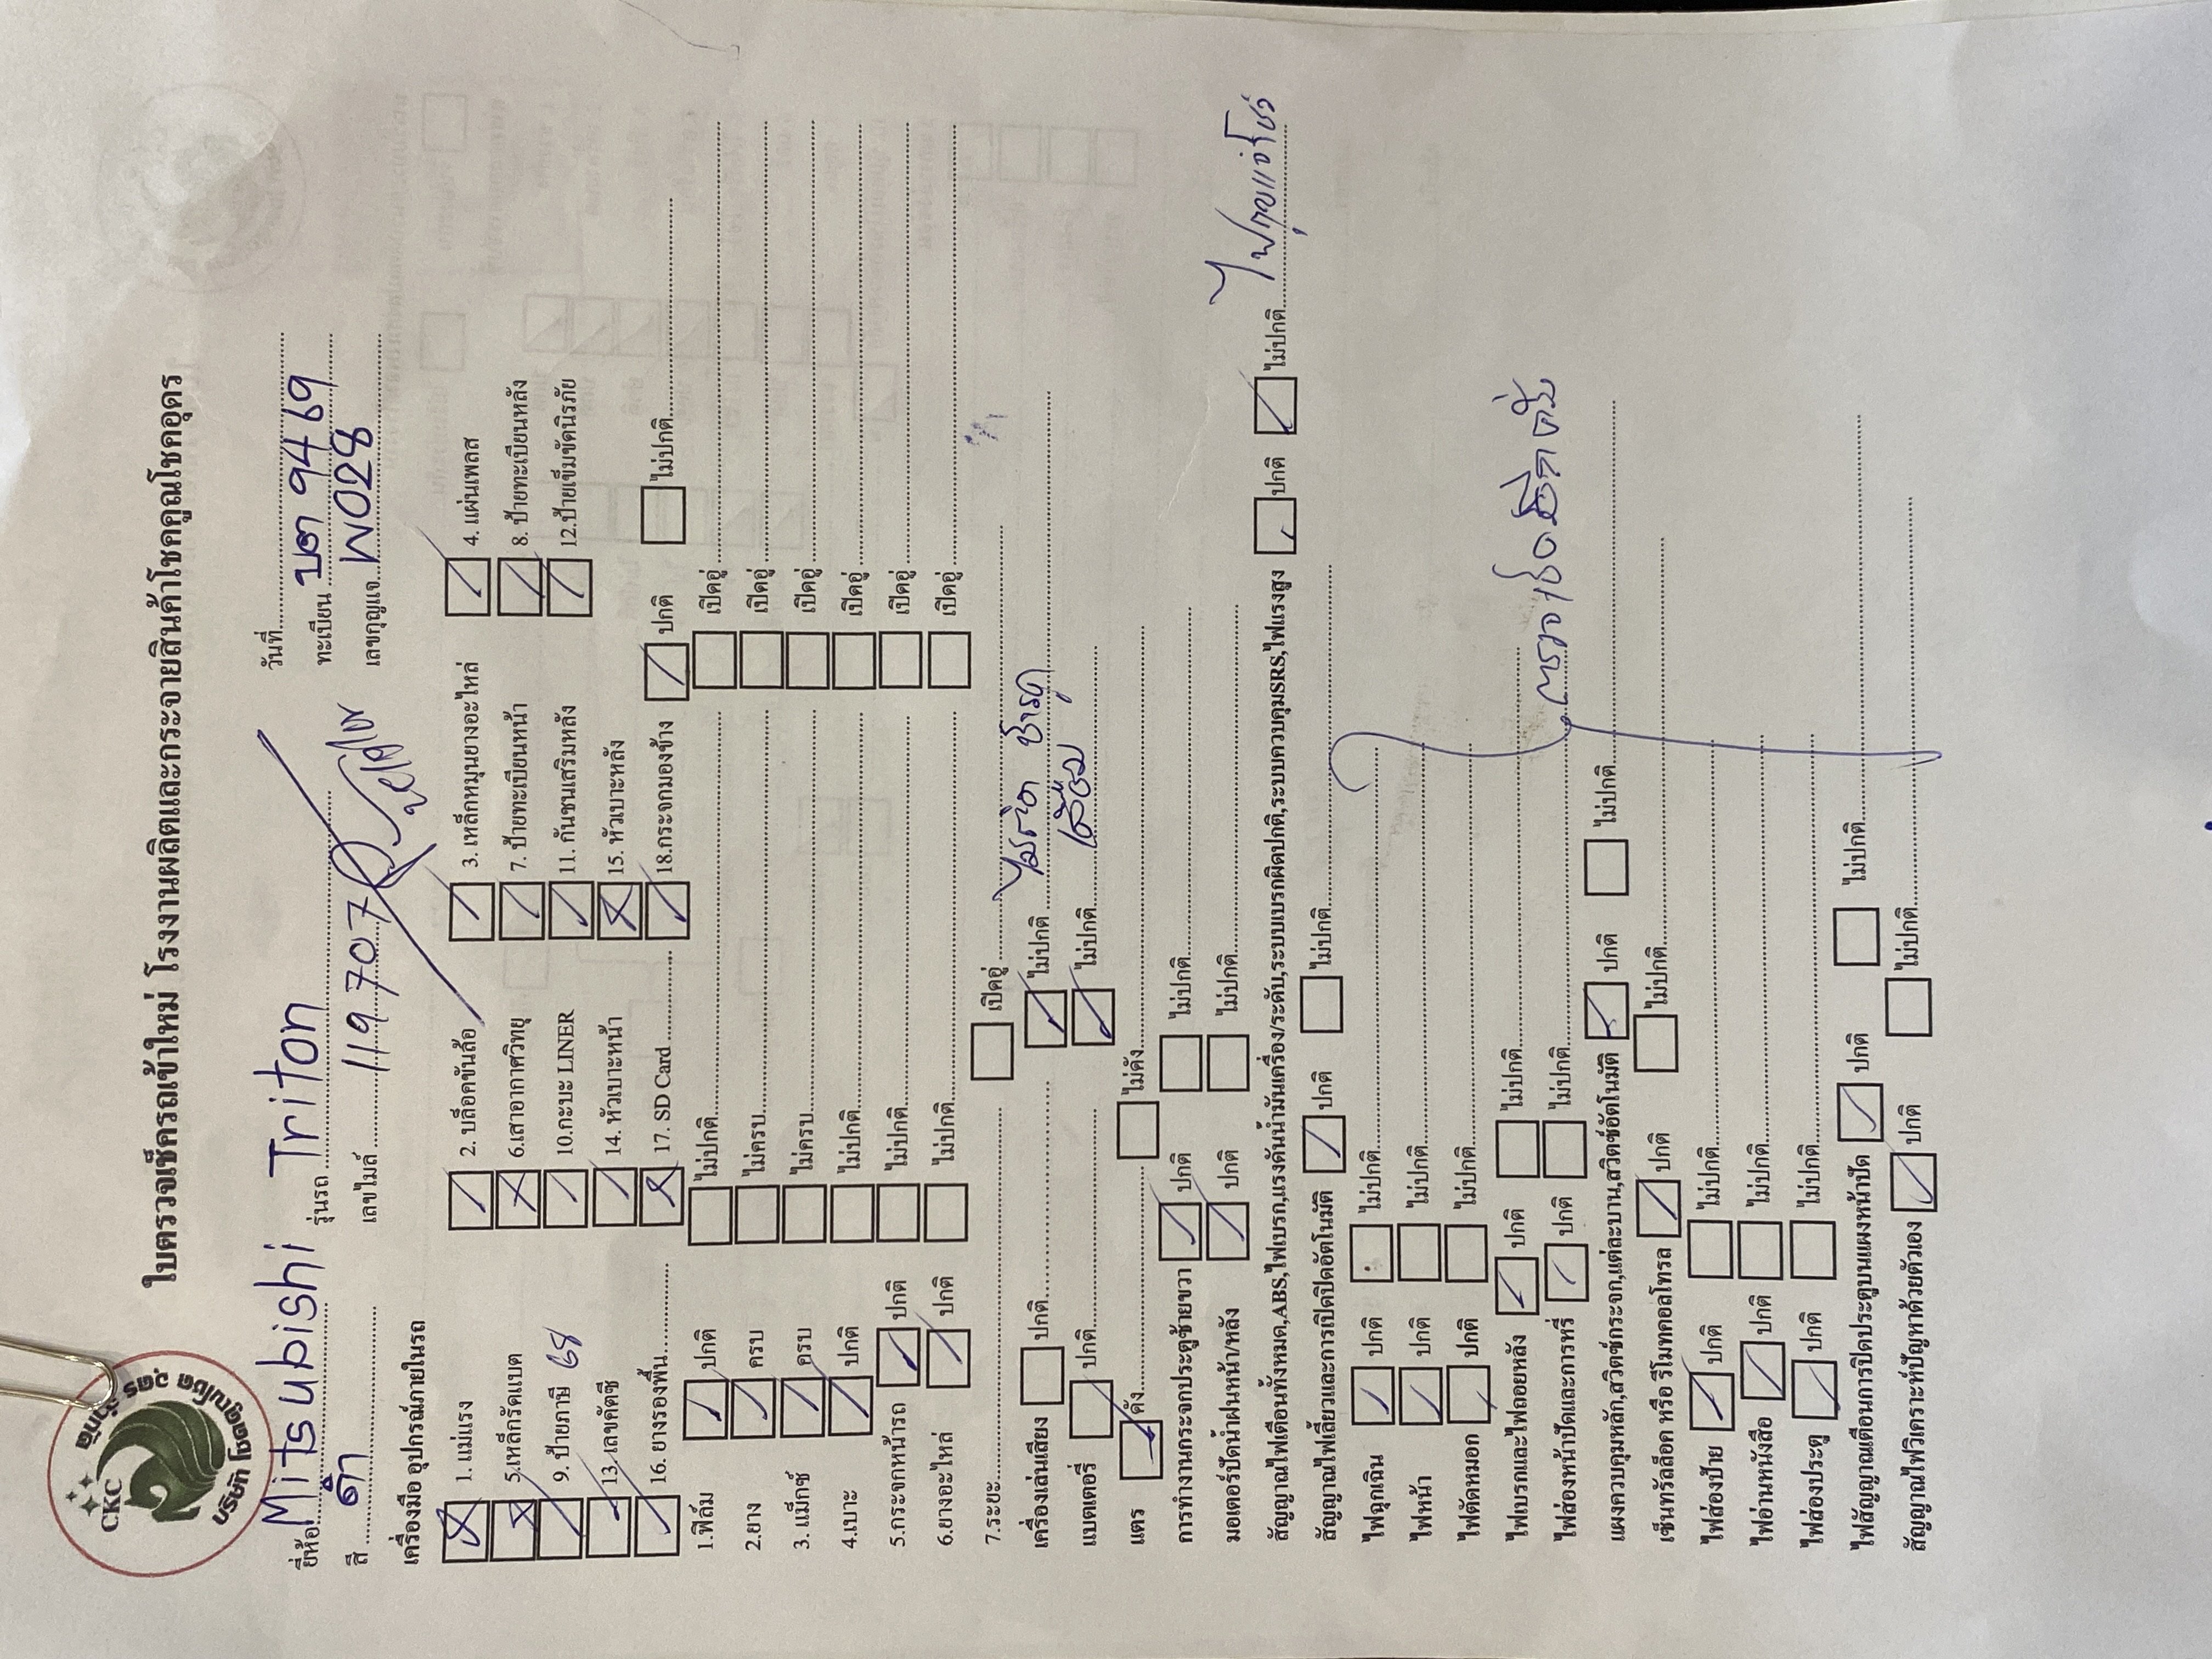 CKC
บริษัท คูณโชค อุดร จำกัด
ใบตรวจเช็ครถเข้าใหม่ โรงงานผลิตและกระจายสินค้าโชคคูณโชคอุดร
ยี่ห้อ Mitsubishi รุ่นรถ Triton วันที่
สี ดำ เลขไมล์ 119707 ทะเบียน บต 9469
เลขกุญแจ W028
เครื่องมือ อุปกรณ์ภายในรถ
1. แม่แรง 2. บล็อคขันล้อ 3. เหล็กหมุนยางอะไหล่ 4. แผ่นเพลส
5.เหล็กรัดแบต 6.เสาอากาศวิทยุ 7. ป้ายทะเบียนหน้า 8. ป้ายทะเบียนหลัง
9. ป้ายภาษี 68 10.กะบะ LINER 11. กันชนเสริมหลัง 12.ป้ายเข็มขัดนิรภัย
13.เลขคัตซี 14. หัวเบาะหน้า 15. หัวเบาะหลัง
16. ยางรองพื้น 17. SD Card 18.กระจกมองข้าง ปกติ ไม่ปกติ
1.ฟิล์ม ปกติ ไม่ปกติ เปิดอู่
2.ยาง ครบ ไม่ครบ เปิดอู่
3. แม็กซ์ ครบ ไม่ครบ เปิดอู่
4.เบาะ ปกติ ไม่ปกติ เปิดอู่
5.กระจกหน้ารถ ปกติ ไม่ปกติ เปิดอู่
6.ยางอะไหล่ ปกติ ไม่ปกติ เปิดอู่
7.ระยะ เปิดอู่
เครื่องเล่นเสียง ปกติ ไม่ปกติ ไมค์ติด ชำรุด
แบตเตอรี่ ปกติ ไม่ปกติ เสื่อม
แตร ดัง ไม่ดัง
การทำงานกระจกประตูซ้ายขวา ปกติ ไม่ปกติ
มอเตอร์ปัดน้ำฝนหน้า/หลัง ปกติ ไม่ปกติ
สัญญาณไฟเตือนทั้งหมด,ABS,ไฟเบรก,แรงดันน้ำมันเครื่อง/ระดับ,ระบบเบรกผิดปกติ,ระบบควบคุมSRS,ไฟแรงสูง ปกติ ไม่ปกติ ไฟกุญแจโชว์
สัญญาณไฟเลี้ยวและการเปิดปิดอัตโนมัติ ปกติ ไม่ปกติ
ไฟฉุกเฉิน ปกติ ไม่ปกติ
ไฟหน้า ปกติ ไม่ปกติ
ไฟตัดหมอก ปกติ ไม่ปกติ
ไฟเบรกและไฟถอยหลัง ปกติ ไม่ปกติ
ไฟส่องหน้าปัดและการหรี่ ปกติ ไม่ปกติ ตรวจเช็คอีกครั้ง
แผงควบคุมหลัก,สวิตซ์กระจก,แต่ละบาน,สวิตซ์อัตโนมัติ ปกติ ไม่ปกติ
เซ็นทรัลล็อค หรือ รีโมทคอลโทรล ปกติ ไม่ปกติ
ไฟส่องป้าย ปกติ ไม่ปกติ
ไฟอ่านหนังสือ ปกติ ไม่ปกติ
ไฟส่องประตู ปกติ ไม่ปกติ
ไฟสัญญาณเตือนการปิดประตูบนแผงหน้าปัด ปกติ ไม่ปกติ
สัญญาณไฟวิเคราะห์ปัญหาด้วยตัวเอง ปกติ ไม่ปกติ